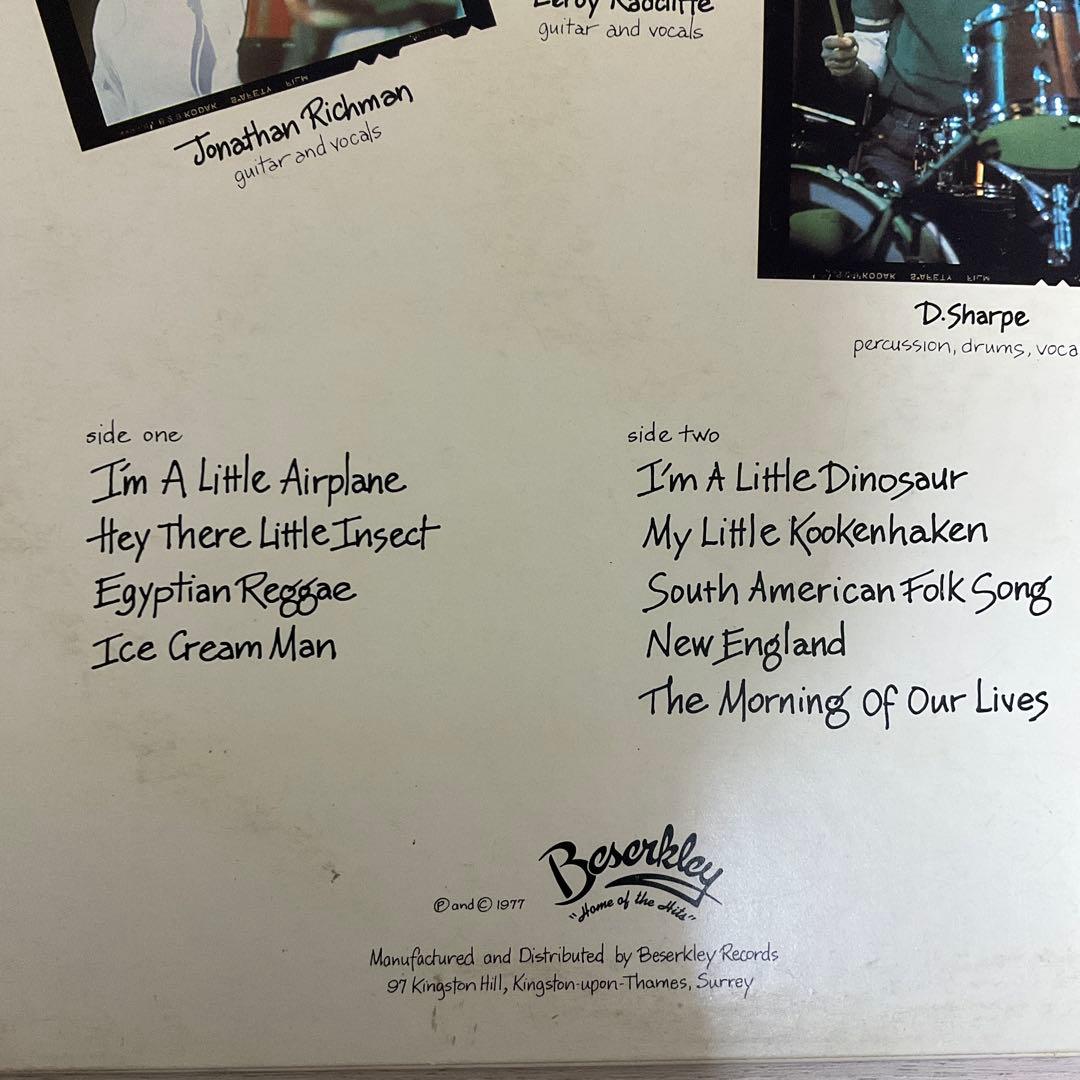 Leroy Radcliffe
guitar and vocals
KODAK SAFETY FILM
Jonathan Richman
guitar and vocals
KODAK SAFETY FILM
D.Sharpe
percussion, drums, voca
side one
I'm A Little Airplane
Hey There Little Insect
Egyptian Reggae
Ice Cream Man
side two
I'm A Little Dinosaur
My Little Kookenhaken
South American Folk Song
New England
The Morning Of Our Lives
Beserkley
"Home of the Hits"
℗ and © 1977
Manufactured and Distributed by Beserkley Records
97 Kingston Hill, Kingston-upon-Thames, Surrey